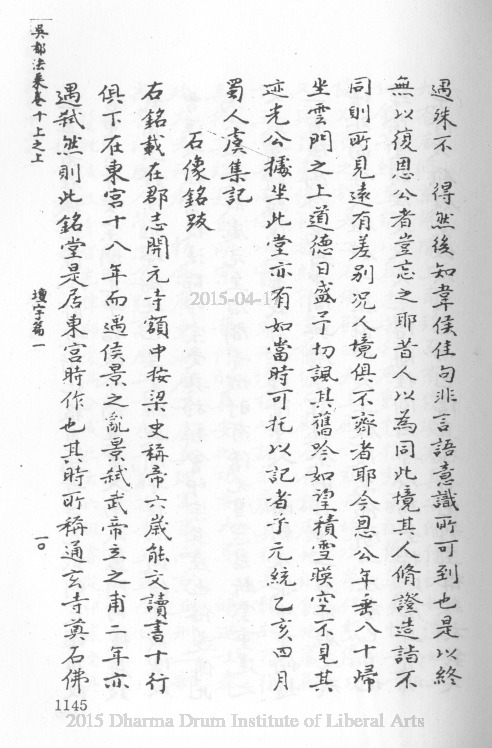 遇殊不 得然後知韋侯佳句非言語意識所可到也是以終
無以復恩公者豈忘之耶昔人以為同此境其人脩證造詣不
同則所見遠有差别況人境俱不齊者耶今恩公年垂八十歸
坐雲門之上道德日盛予切諷其舊吟如望積雪暎空不見其
迹光公據坐此堂亦有如當時可托以記者乎元統乙亥四月
蜀人虞集記
石像銘跋
右銘載在郡志開元寺額中按梁史稱帝六歲能文讀書十行
俱下在東宮十八年而遇侯景之亂景弑武帝立之甫二年亦
遇弑然則此銘堂是居東宮時作也其時所稱通玄寺奠石佛
吳都法乘卷十上之上
壇宇篇一
一〇
1145
2015-04-1
2015 Dharma Drum Institute of Liberal Arts